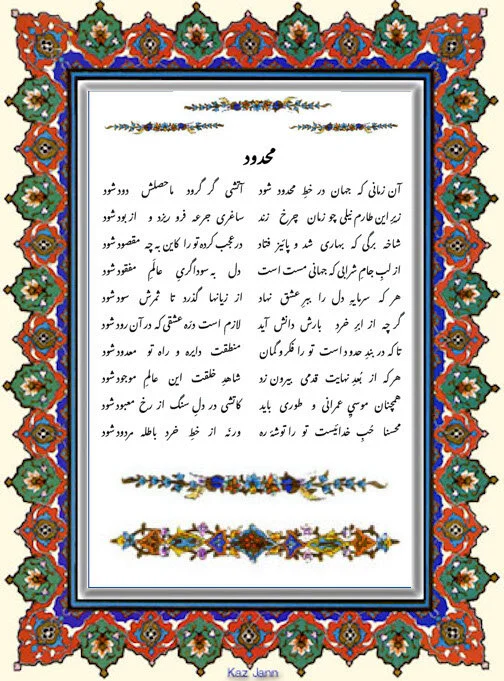 محدود
آن زمانی که جهان در خطِ محدود شود آتشی گر گرود ماحصلش دود شود
زیر این طارم نیلی چو زمان چرخ زند ساغری جرعه فرو ریزد و از بود شود
شاخه برگی که بهاری شد و پائیز فتاد در عجب کرده تو را کاین به چه مقصود شود
از لبِ جامِ شرابی که جهانی مست است دل به سوداگریِ عالَم مفقود شود
هر که سرمایهٔ دل را ببرِ عشق نهاد از زیانها گذرد تا ثمرش سود شود
گر چه از ابرِ خرد بارش دانش آید لازم است درّه عشقی که در آن رود شود
تا که در بندِ حدود است تو را فکر و گمان منطقت دایره و راه تو معدود شود
هر که از بُعدِ نهایت قدمی بیرون زد شاهدِ خلقت این عالمِ موجود شود
همچنان موسیِ عمرانی و طوری باید کاتشی در دلِ سنگ از رخ معبود شود
محسنا حُبّ خدائیست تو را توشهٔ ره ورنه از خطِ خرد باطله مردود شود
Kaz Jann